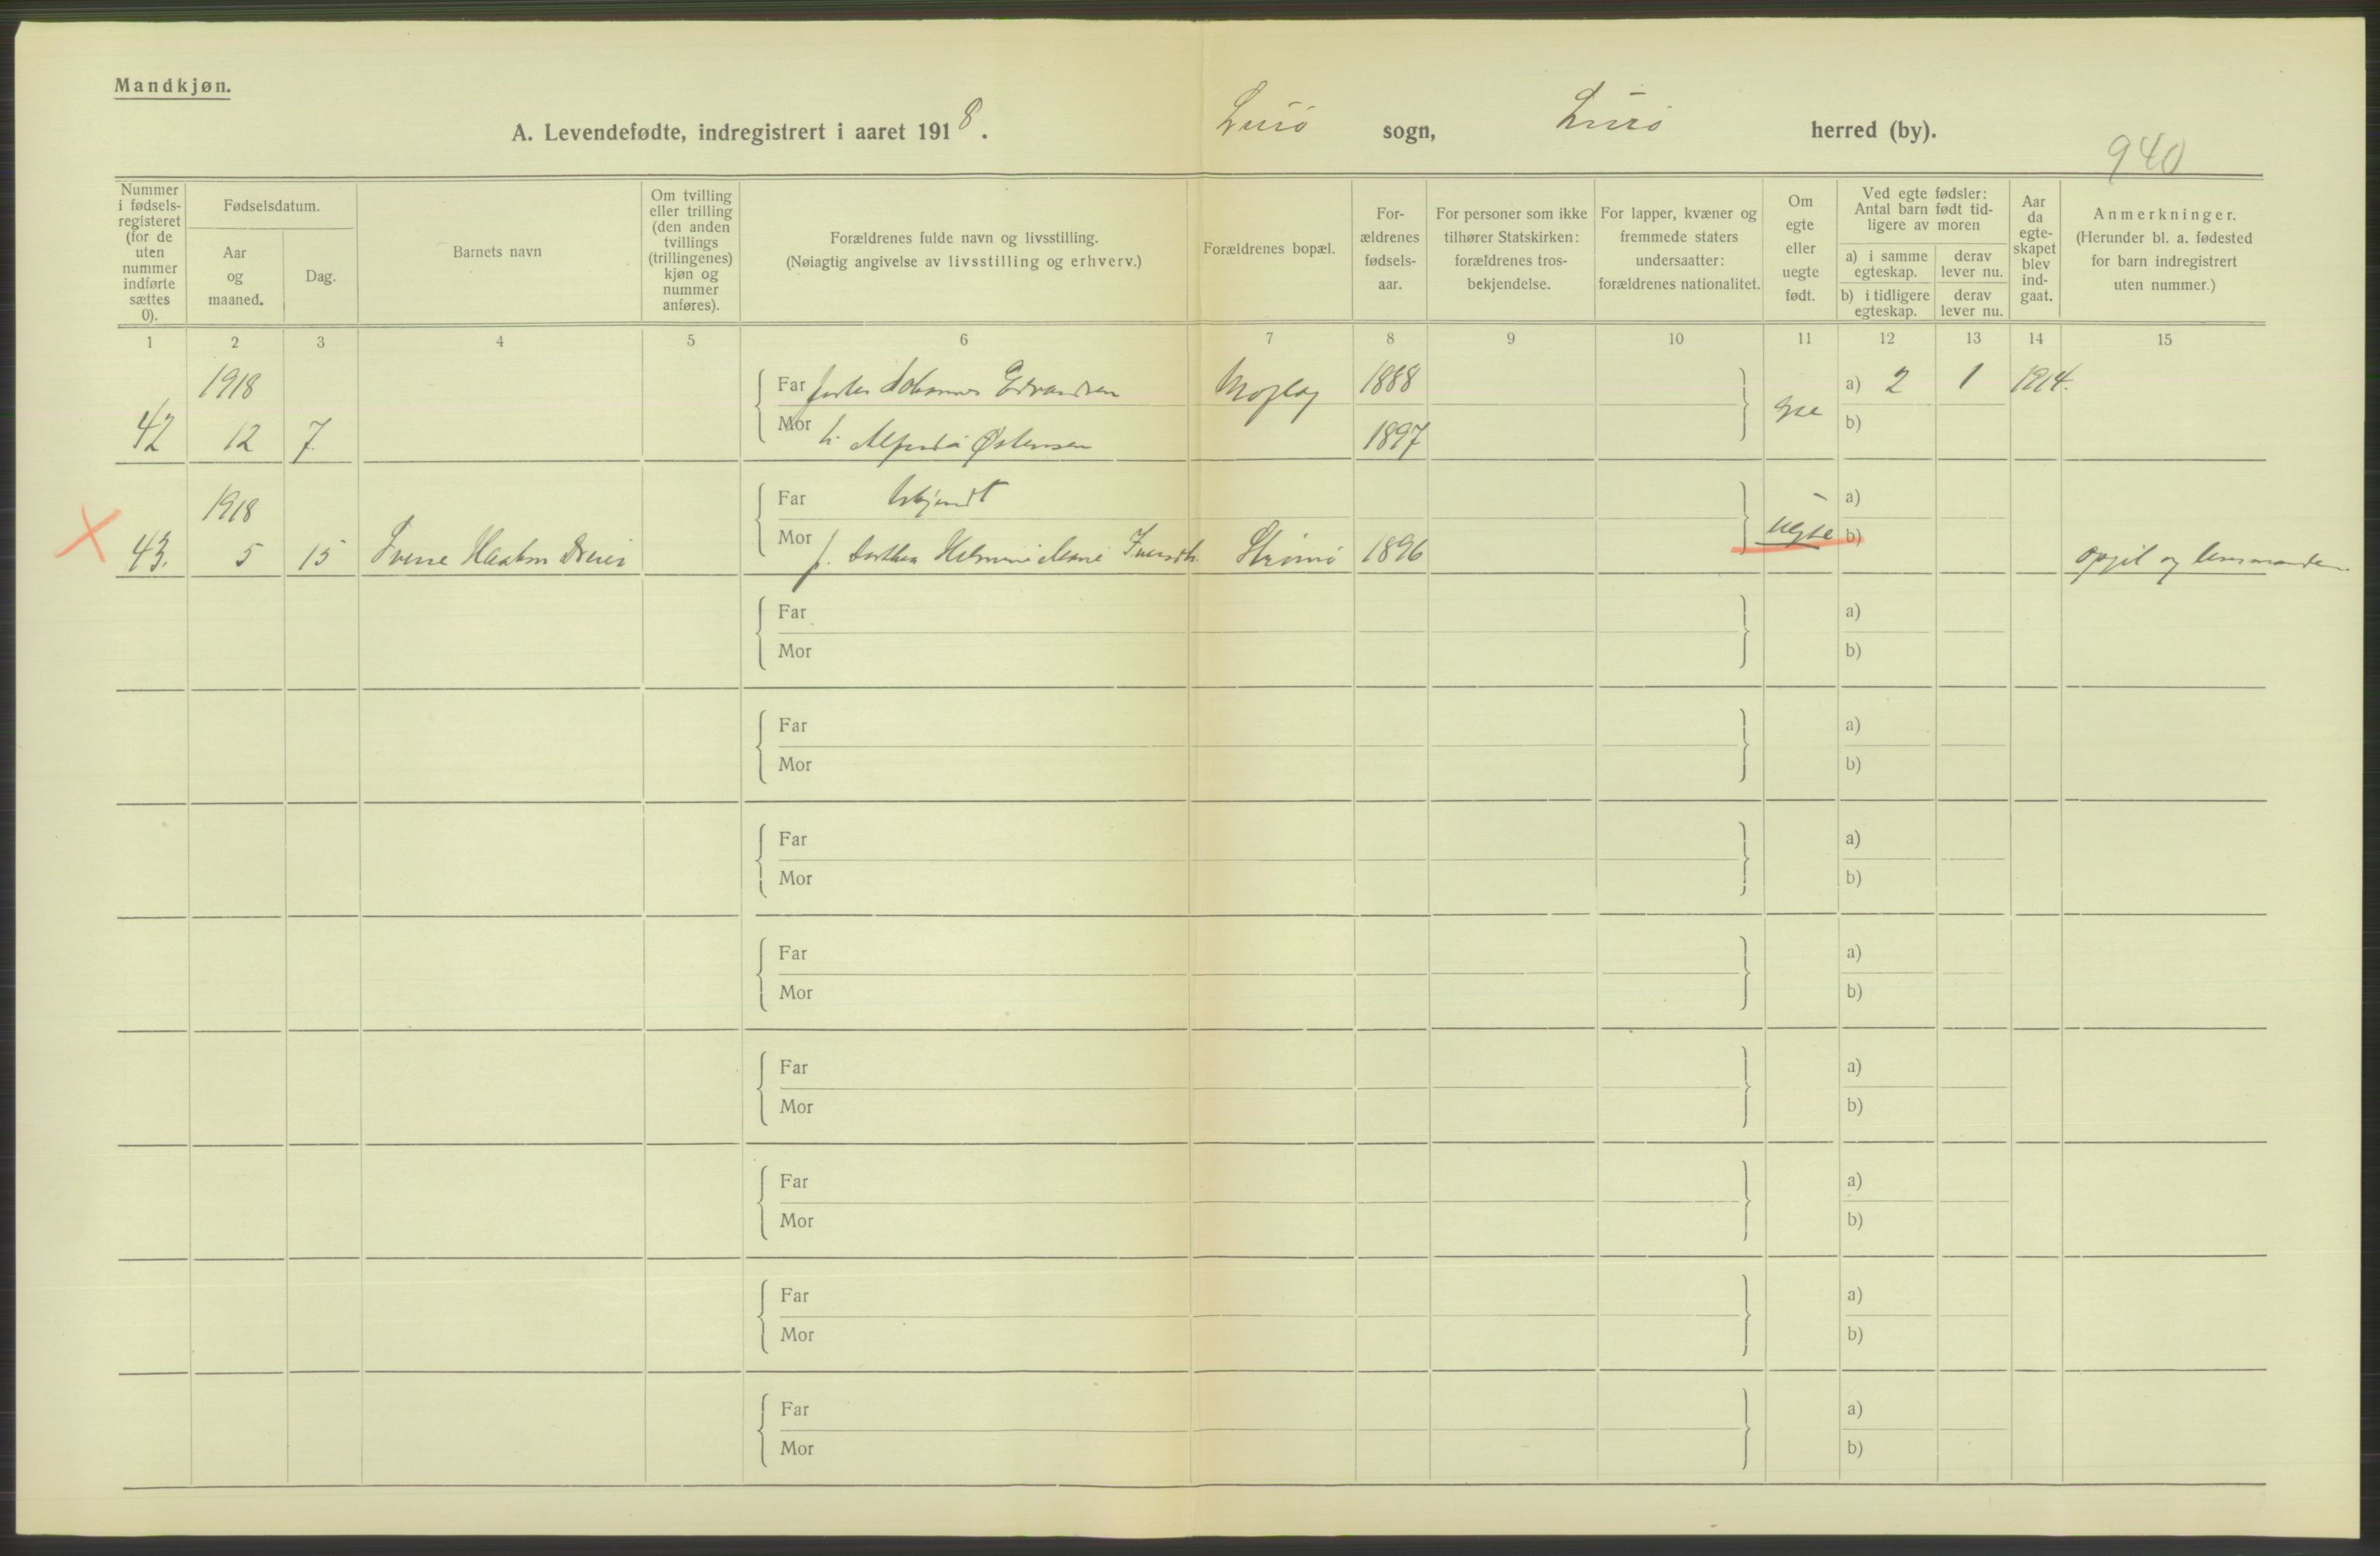 Mandkjøn.
A. Levendefødte, indregistrert i aaret 1918. Lurö sogn, Lurö herred (by).
940
Nummer i fødsels-registeret (for de uten nummer indførte sættes 0).
Fødselsdatum.
Aar og maaned.
Dag.
Barnets navn
Om tvilling eller trilling (den anden tvillings (trillingenes) kjøn og nummer anføres).
Forældrenes fulde navn og livsstilling.
(Nøiagtig angivelse av livsstilling og erhverv.)
Forældrenes bopæl.
For-ældrenes fødsels-aar.
For personer som ikke tilhører Statskirken: forældrenes tros-bekjendelse.
For lapper, kvæner og fremmede staters undersaatter: forældrenes nationalitet.
Om egte eller uegte født.
Ved egte fødsler: Antal barn født tid-ligere av moren
a) i samme egteskap.
derav lever nu.
b) i tidligere egteskap.
derav lever nu.
Aar da egte-skapet blev ind-gaat.
Anmerkninger.
(Herunder bl. a. fødested for barn indregistrert uten nummer.)
1 2 3 4 5 6 7 8 9 10 11 12 13 14 15
1918 Far Johannes 1888 a) 2 1 1914.
42 12 7. Mor Østensen 1897 b)
1918 Far Ukjendt a)
43. 5 15 Sverre Haakon Mor Strömö 1896 uegte b) Opgit og lensmanden.
Far a)
Mor b)
Far a)
Mor b)
Far a)
Mor b)
Far a)
Mor b)
Far a)
Mor b)
Far a)
Mor b)
Far a)
Mor b)
Far a)
Mor b)